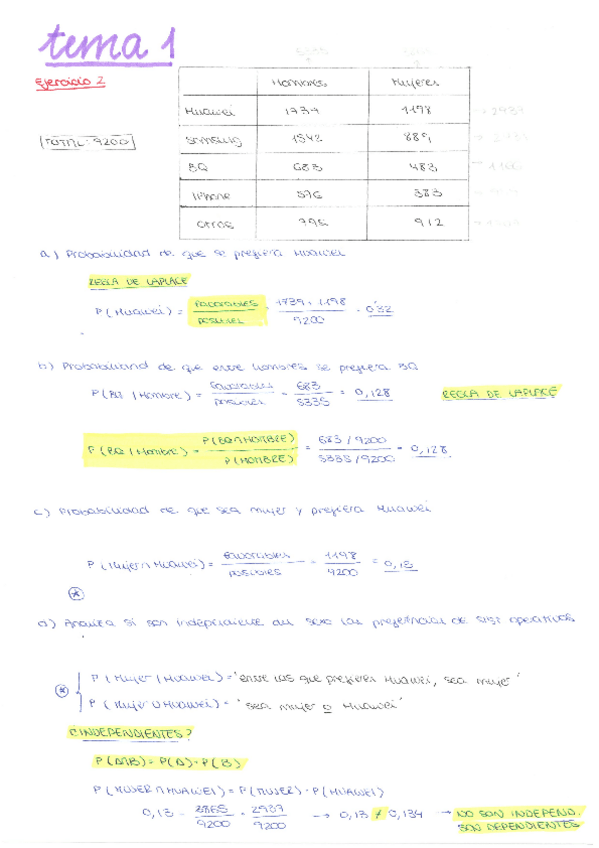 tema 1
Ejercicio 2
Hombres Mujeres
Huawei 1739 1198
TOTAL: 9200
Samsung 1542 889
BQ 683 483
iPhone 576 383
otros 795 912
a) Probabilidad de que se prefiera Huawei
REGLA DE LAPLACE
P(Huawei) = FAVORABLES / POSIBLES = 1739 + 1198 / 9200 = 0'32
b) Probabilidad de que entre hombres se prefiera BQ
P(BQ | Hombre) = favorables / posibles = 683 / 5335 = 0,128 REGLA DE LAPLACE
P(BQ | Hombre) = P(BQ∩HOMBRE) / P(HOMBRE) = 683/9200 / 5335/9200 = 0,128
c) Probabilidad de que sea mujer y prefiera Huawei
P(Mujer∩Huawei) = favorables / posibles = 1198 / 9200 = 0,13
d) Analiza si son independiente del sexo las preferencias de sist operativos
P(Mujer | Huawei) = "entre los que prefieren Huawei, sea mujer"
P(Mujer ∪ Huawei) = "sea mujer o Huawei"
¿INDEPENDIENTES?
P(A∩B) = P(A)·P(B)
P(MUJER∩HUAWEI) = P(MUJER)·P(HUAWEI)
0,13 = 3865 / 9200 · 2937 / 9200 → 0,13 ≠ 0,134 → NO SON INDEPEND.
SON DEPENDIENTES